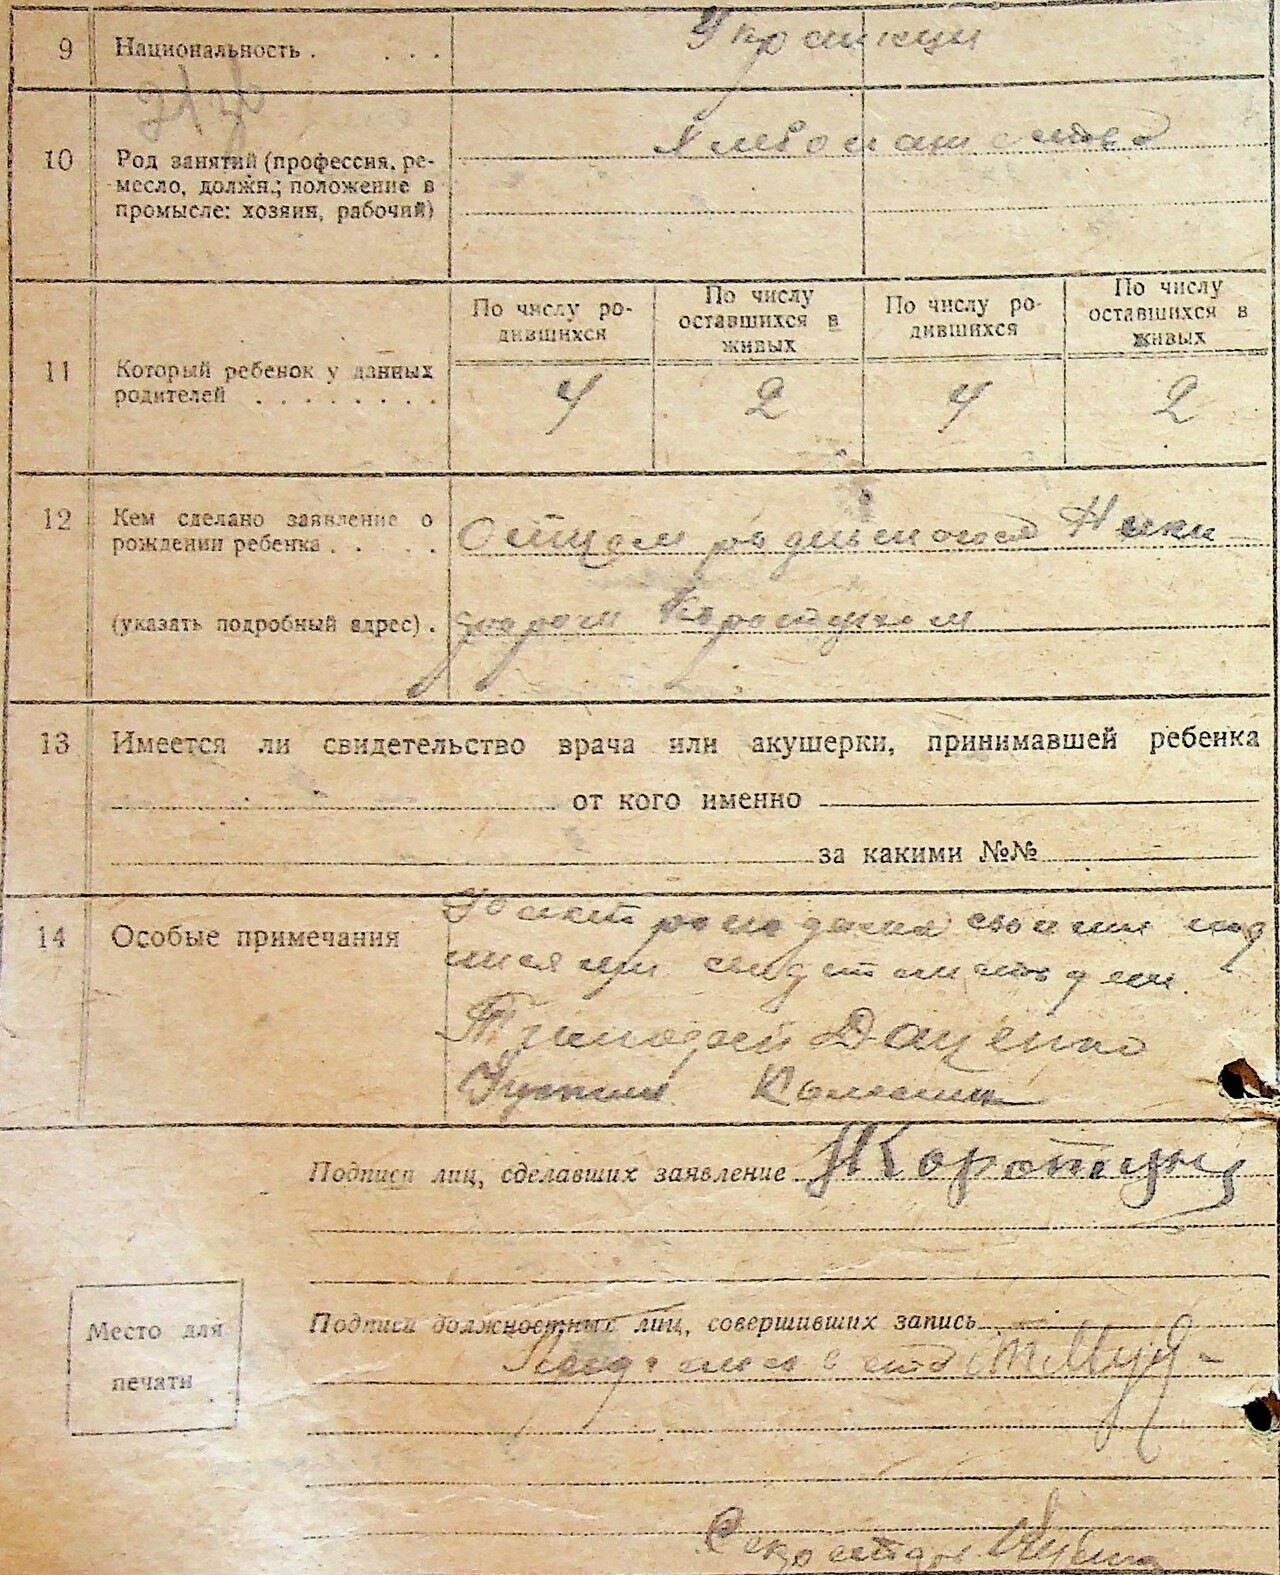 9 Национальность . . . .
Украинцы
10 Род занятий (профессия, ре-
месло, должн.; положение в
промысле: хозяин, рабочий)
Хлебопашество
По числу ро-
дившихся
По числу
оставшихся в
живых
По числу ро-
дившихся
По числу
оставшихся в
живых
11 Который ребенок у данных
родителей . . . . . . . .
4 2 4 2
12 Кем сделано заявление о
рождении ребенка . . . . .
Отцом Ники
(указать подробный адрес) .
фором Коротуном
13 Имеется ли свидетельство врача или акушерки, принимавшей ребенка
от кого именно
за какими №№
14 Особые примечания
Факт рождения своими под
писями
Тимофей Даценко
Подписи лиц, сделавших заявление НКоротун
Место для
печати
Подписи должностных лиц, совершивших запись
Секретарь